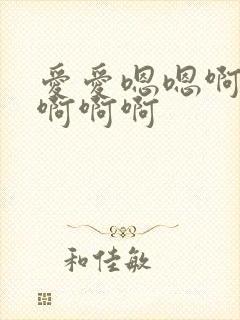 爱爱嗯嗯啊
啊啊啊
和佳敏